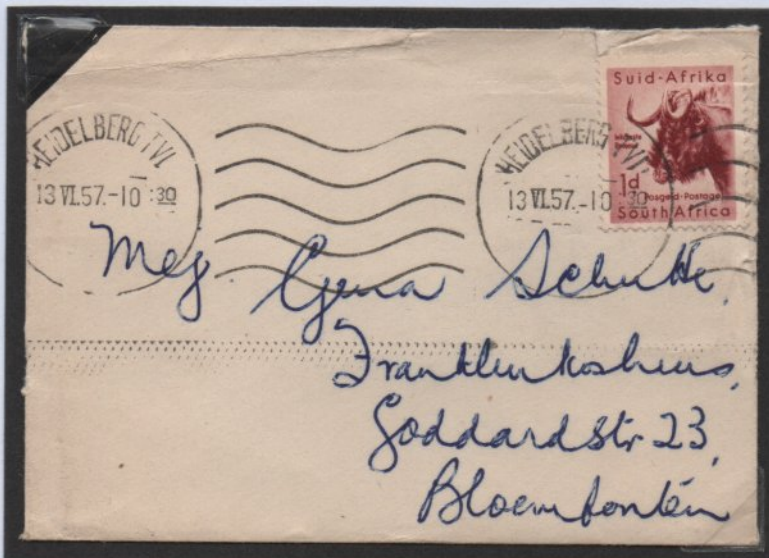 HEIDELBERG TVL
13 VI.57.-10 30
HEIDELBERG TVL
13 VI.57.-10 30
Suid-Afrika
1d
Posgeld-Postage
South Africa
Mej Gena Schutte,
Franklinkoshuis,
Goddardstr 23,
Bloemfontein